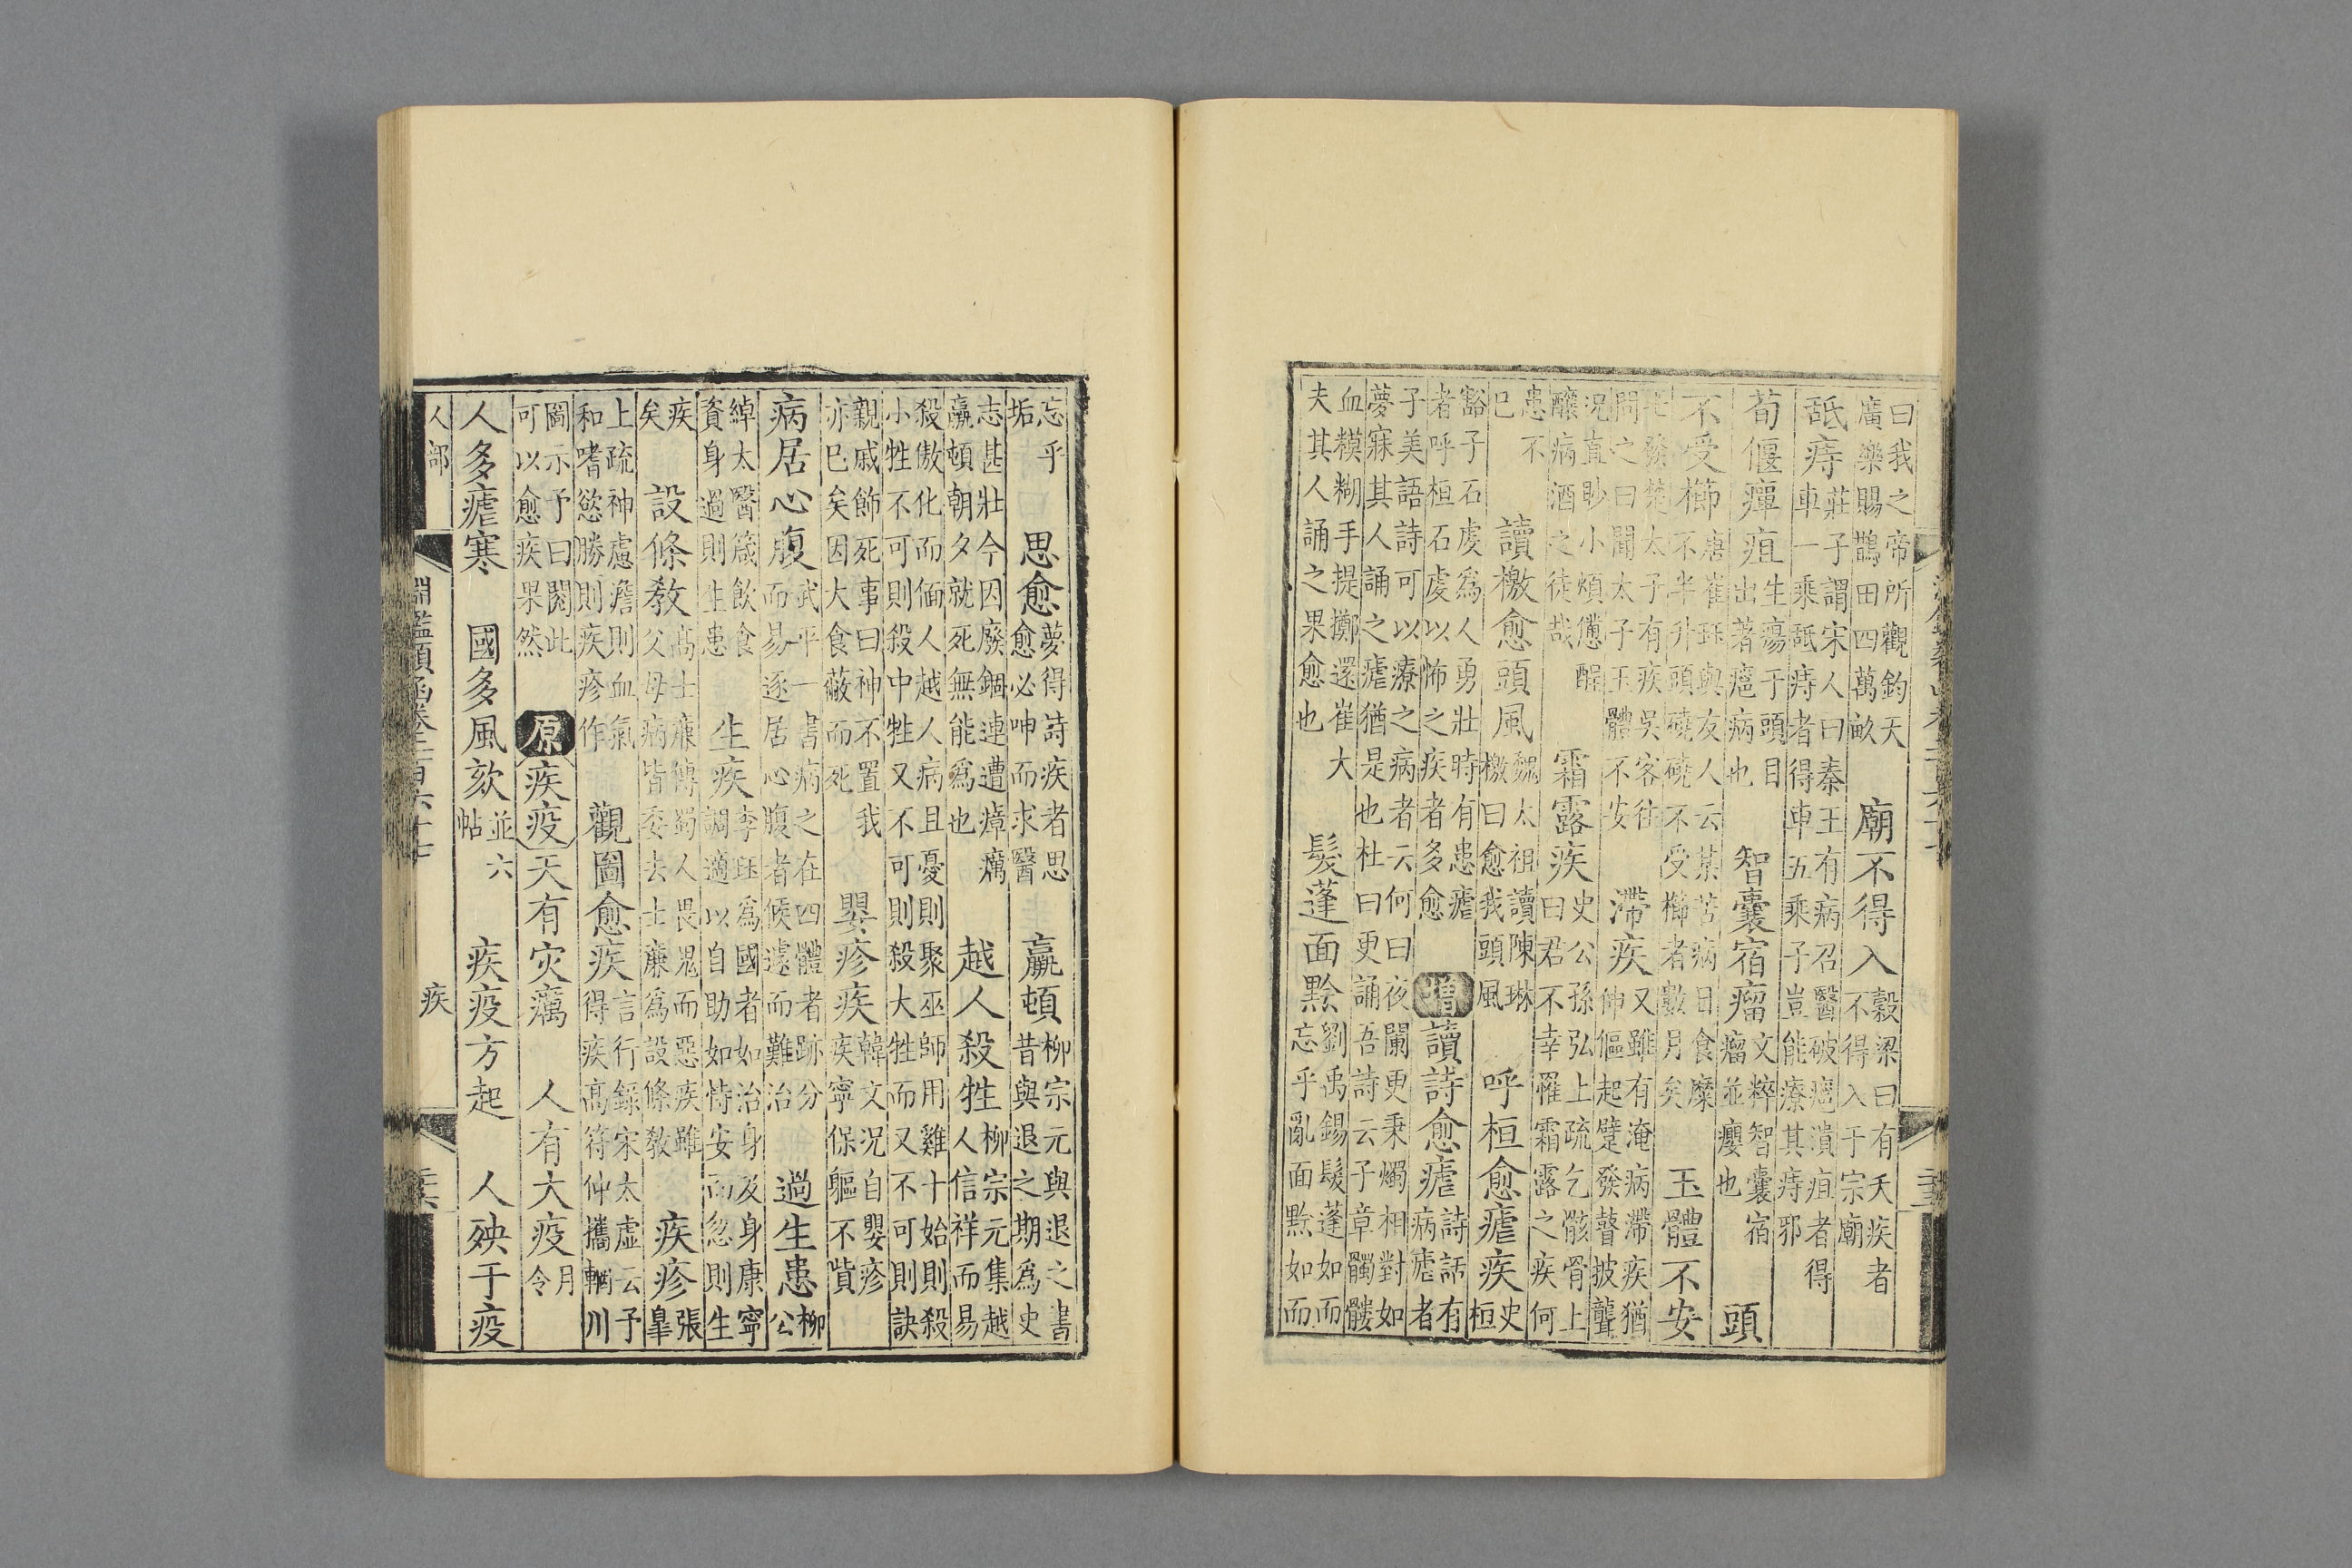 曰我之帝所觀鈞天
廣樂賜鵲田四萬畝
廟不得入
穀梁曰有天疾者
不得入于宗廟
舐痔
莊子謂宋人曰秦王有病召醫破癰潰疽者得
車一乘舐痔者得車五乘子豈能療其痔邪
頭
荀偃癉疽
生瘍于頭目
出著癰病也
智囊宿瘤
文粹智囊宿
瘤並癭也
不受櫛
唐崔珏與友人云某苦病日食糜
不半升頭磽磽不受櫛者數月矣
玉體不安
發楚太子有疾吳客往
問之曰聞太子玉體不安
滯疾
又雖有淹病滯疾猶
伸傴起躄發瞽披聾
況直眇小煩懣酲
醲病酒之徒哉
霜露疾
史公孫弘上疏乞骸骨上
曰君不幸罹霜露之疾何
患不
已
讀檄愈頭風
魏太祖讀陳琳
檄曰愈我頭風
呼桓愈瘧疾
史
桓
豁子石虔爲人勇壯時有患瘧
者呼桓石虔以怖之疾者多愈
增
讀詩愈瘧
詩話有
病瘧者
子美語詩可以療之病者云何曰夜闌更秉燭相對如
夢寐其人誦之瘧猶是也杜曰更誦吾詩云子章髑髏
血糢糊手提擲還崔大
夫其人誦之果愈也
髮蓬面黟
劉禹錫髮蓬如而
忘乎亂面黟如而
忘乎
垢
思愈
夢得詩疾者思
愈必呻而求醫
羸頓
柳宗元與退之書
昔與退之期爲史
志甚壯今因廢錮連遭瘴癘
羸頓朝夕就死無能爲也
越人殺牲
柳宗元集越
人信祥而易
殺傲化而偭人越人病且憂則聚巫師用雞十始則殺
小牲不可則殺中牲又不可則殺大牲而又不可則訣
親戚飭死事曰神不置我
亦已矣因大食蔽而死
嬰疹疾
韓文況自嬰疹
疾寧保軀不貲
病居心腹
武平一書病之在四體者跡分
而易逐居心腹者候遽而難治
過生患
柳
公
綽太醫箴飲食
資身過則生患
生疾
李珏爲國者如治身及身康寧
調適以自助如恃安而忽則生
疾
矣
設條教
高士廉傳蜀人畏鬼而惡疾雖
父母病皆委去士廉爲設條教
疾疹
張
臯
上疏神慮澹則血氣
和嗜慾勝則疾疹作
觀圖愈疾
言行錄宋太虛云予
得疾高符仲攜輞川
圖示予曰閱此
可以愈疾果然
原
疾疫
天有災癘
人有大疫
月
令
人多瘧寒
國多風欬
並六
帖
疾疫方起
人殃于疫
人部
淵鑑類函卷二百六十七
疾